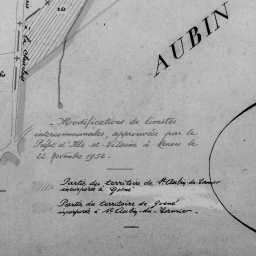 AUBIN
Modifications de limites
intercommunales, approuvées par le
Préfet d'Ille-et-Vilaine à Rennes le
22 Novembre 1954.
Partie du territoire de St Aubin-du-Cormier
incorporée à Gosné
Partie du territoire de Gosné
incorporée à St Aubin-du-Cormier.